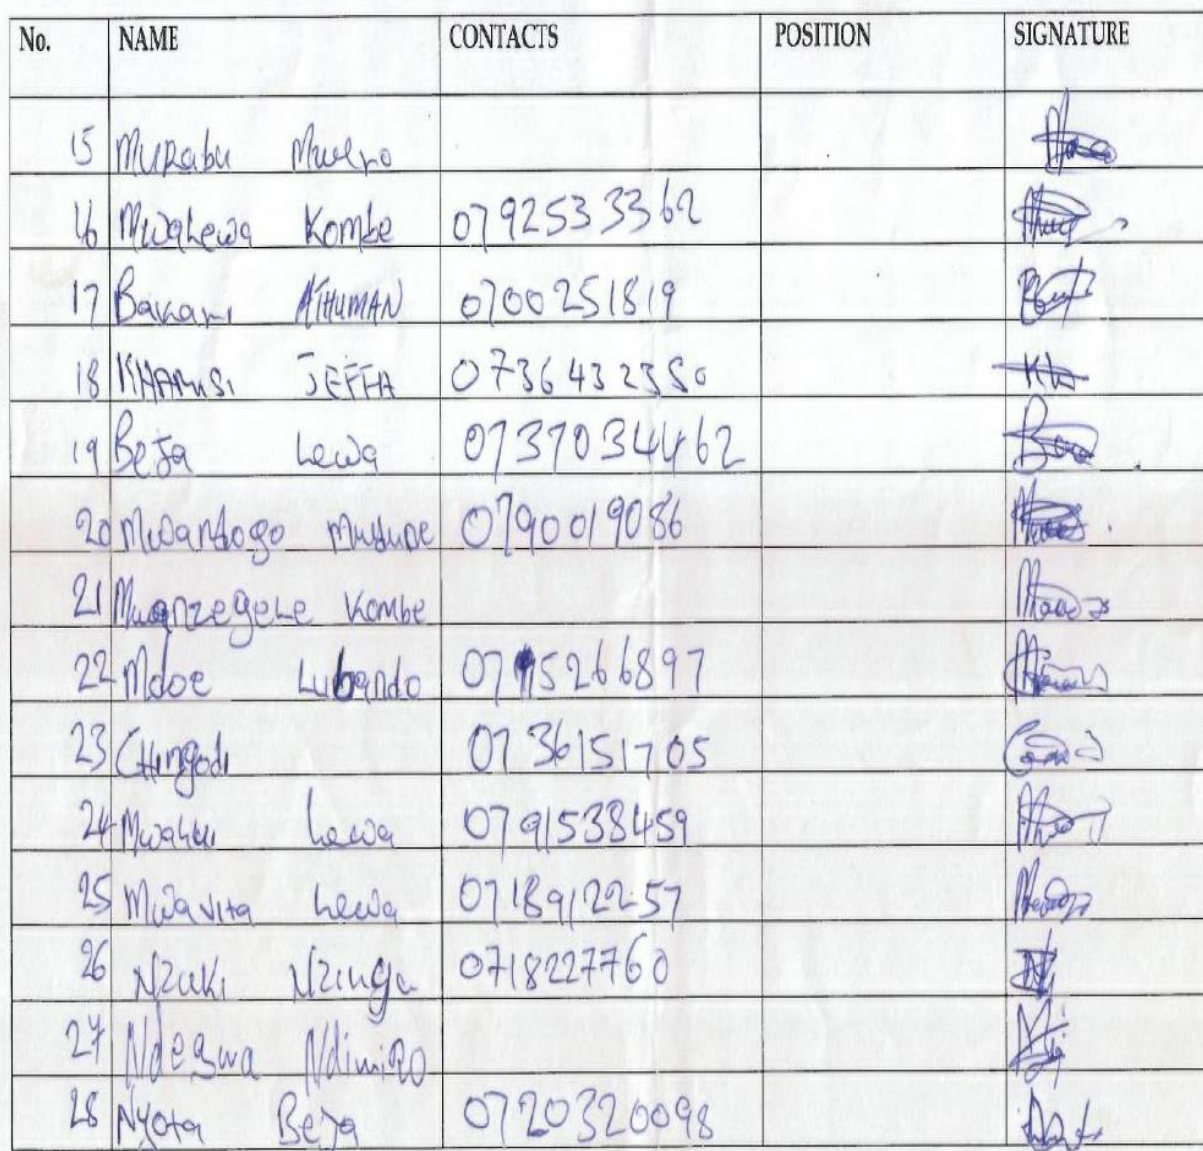 No. NAME CONTACTS POSITION SIGNATURE
15 Murabu
16 Mwalewa Kombe 0792533362
17 Bakari ATHUMAN 0700251819
18 KHAMISI JEFFA 0736432350
19 Beja Lewa 0737034462
20 Mwandogo 0790019086
21 Mwanzegele Kombe
22 Mdoe Lubando 0715266897
23 Chingodi 0736151705
24 Lewa 0791538459
25 Mwavita Lewa 0718912257
26 Nzuki Nzinga 0718227760
27 Ndegwa Ndimiro
28 Nyota Beja 0720320098